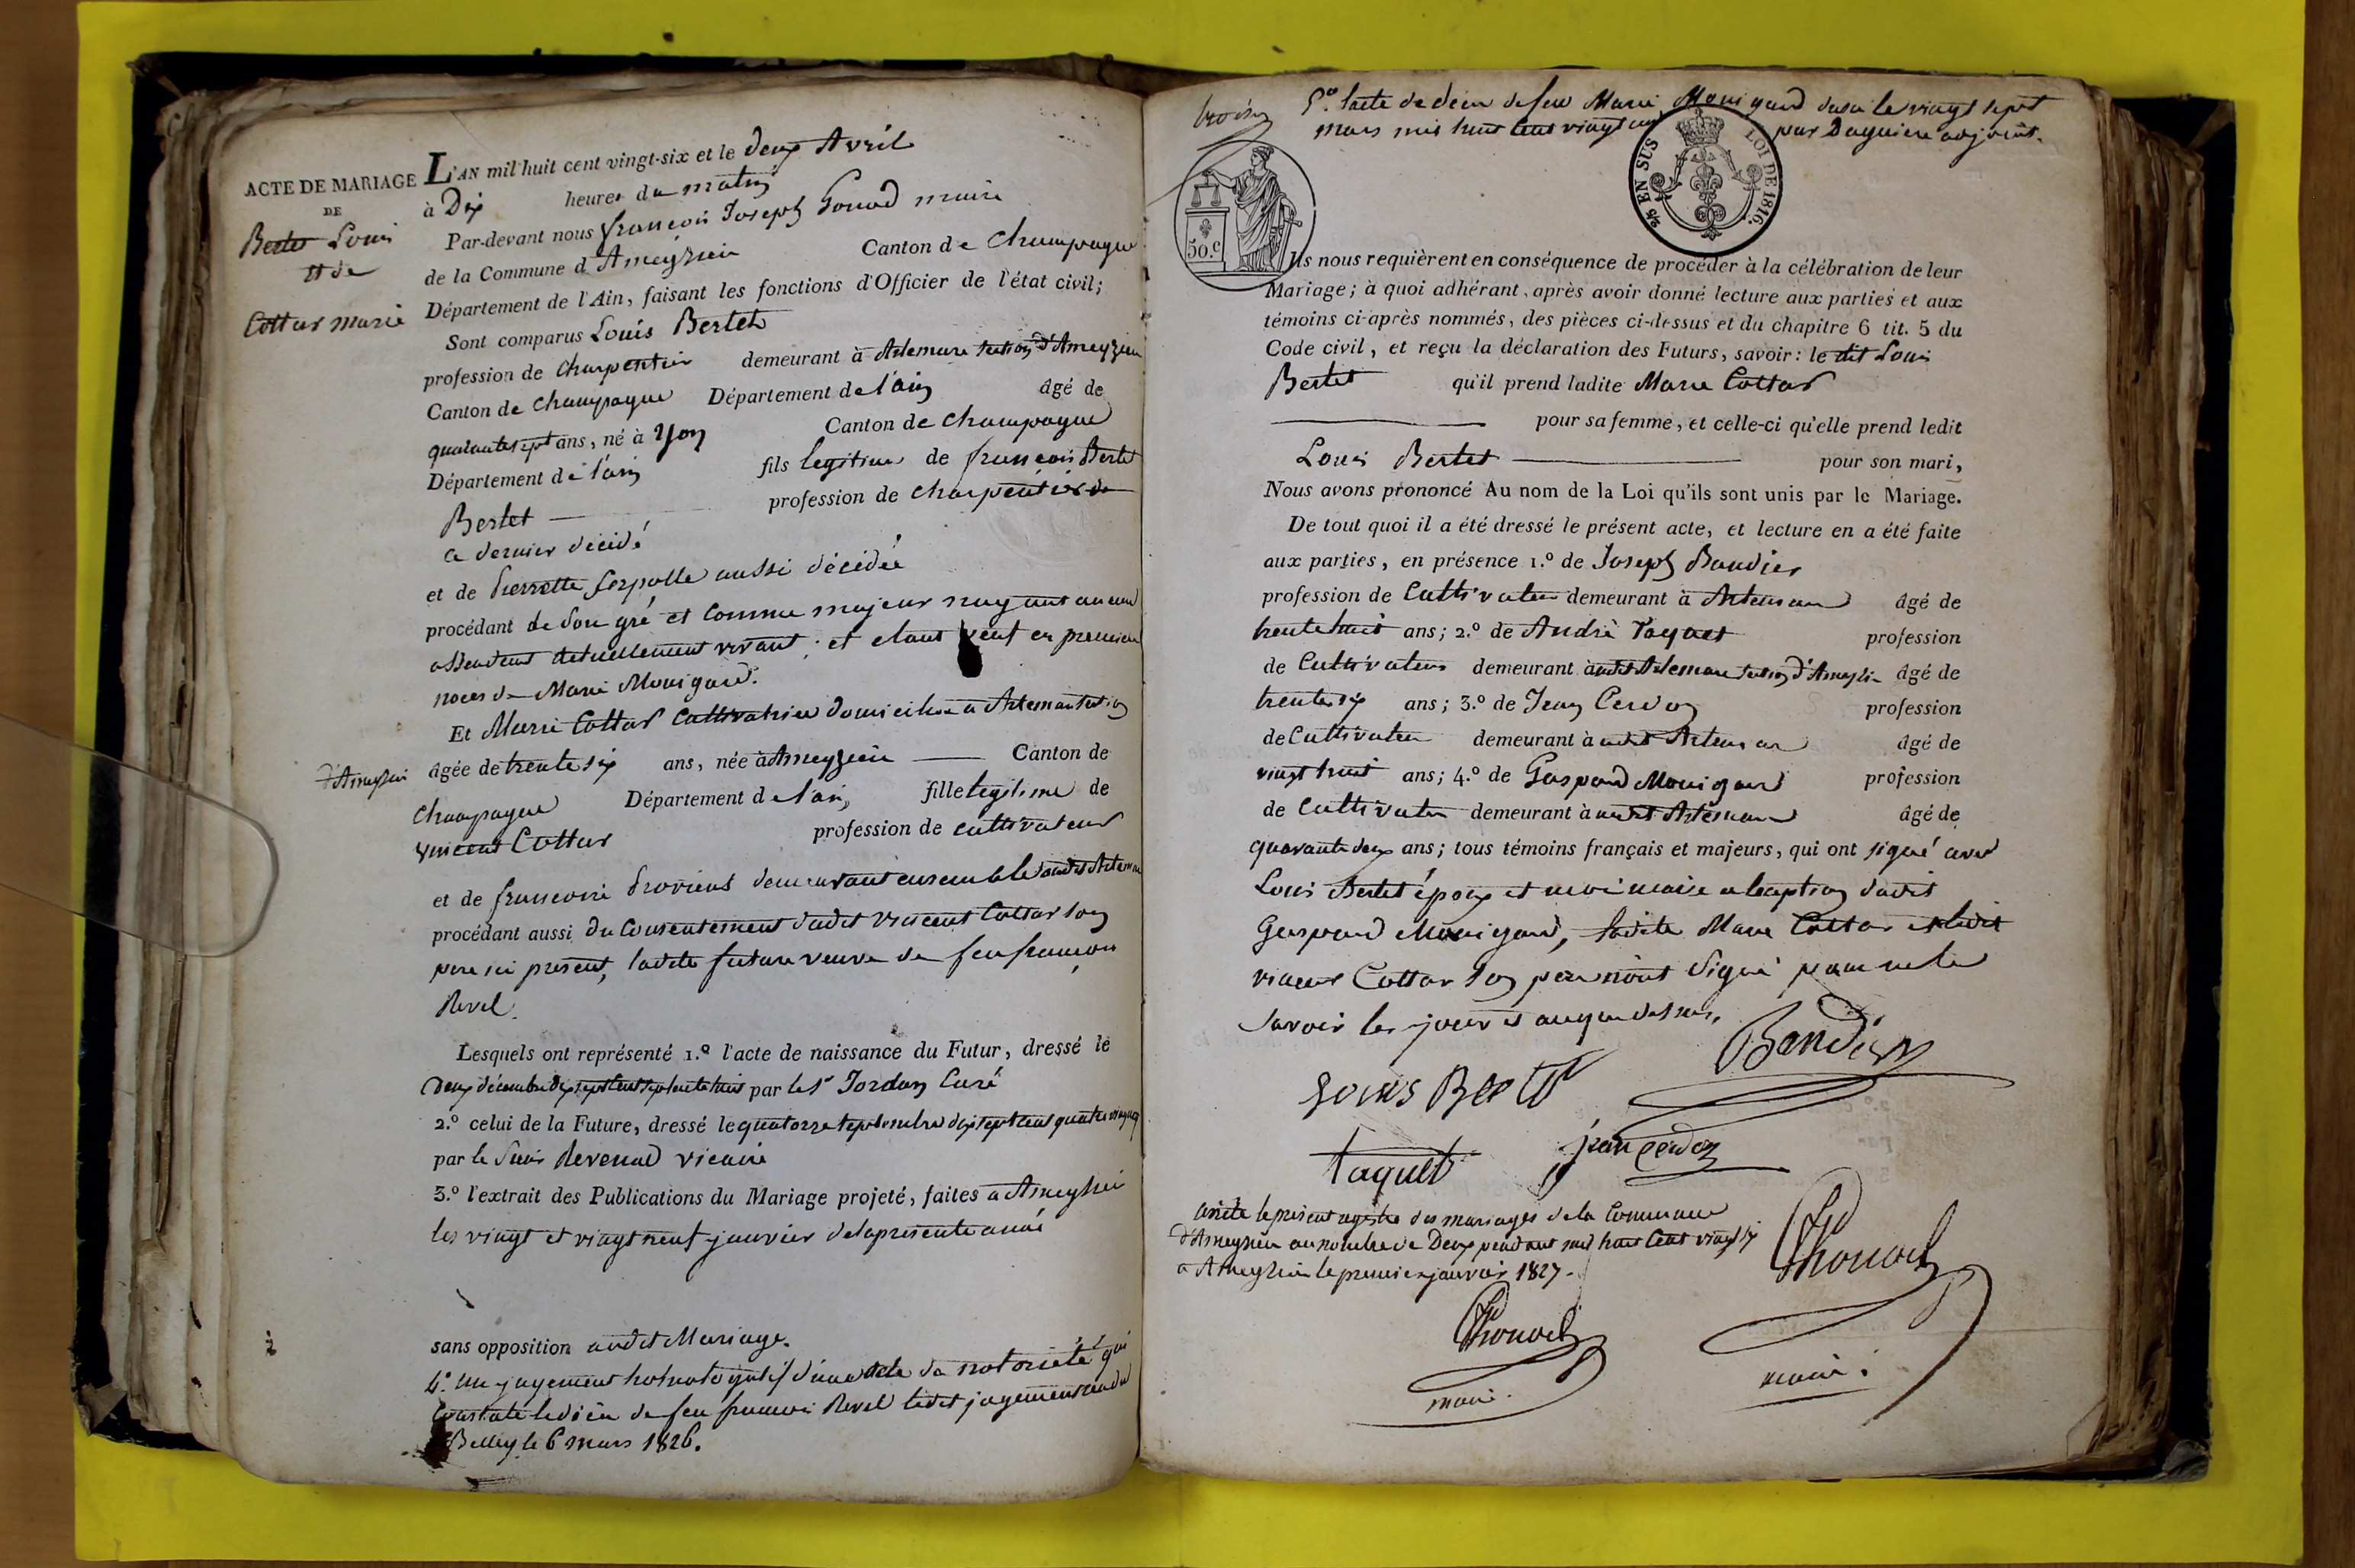 ACTE DE MARIAGE
DE
Bertet Louis
et de
Cottar marie
L'AN mil huit cent vingt-six et le deux Avril
à Dix heures du matin
Par-devant nous françois Joseph maire
de la Commune d'Ameyzieu Canton de Champagne
Département de l'Ain, faisant les fonctions d'Officier de l'état civil;
Sont comparus Louis Bertet
profession de Charpentier demeurant à Artemare section d'Ameyzieu
Canton de Champagne Département de l'ain âgé de
quarante sept ans, né à Yon Canton de Champagne
Département de l'ain fils legitime de françois Bertet
Bertet profession de Charpentier
ce dernier décédé
et de Pierrette aussi décédée
procédant de Son gré et Comme majeur nayant aucun
assendant actuellement vivant; et etant veuf en premiere
noces de Marie Monigard.
Et Marie Cottar Cultivatrice domiciliée a Artemare section
d'Ameyzieu
âgée de trente six ans, née à Ameyzieu Canton de
Champagne Département de l'ain fille legitime de
vincent Cottar profession de cultivateur
et de françoise demeurant ensemble audit Artemare
procédant aussi du Consentement dudit vincent Cottar son
pere ici présent, ladite future veuve de feu françois
Revel.
Lesquels ont représenté 1.º l'acte de naissance du Futur, dressé le
Deux décembre dix sept cent septante huit par le Sr Jordan Curé
2.º celui de la Future, dressé le quatorze septembre dix sept cent quatre vingt
par le Sieur Revenad vicaire
3.º l'extrait des Publications du Mariage projeté, faites a Ameyzieu
les vingt et vingt neuf janvier de la presente année
sans opposition audit Mariage.
4.º un jugement d'un acte de notoriété qui
Constate le décès de feu françois Revel ledit jugement rendu
Belley le 6 mars 1826.
5.º lacte de décès de feue Marie Monigard daté le vingt sept
mars mil huit cent vingt par Daguiere adjoint.
25 EN SUS
LOI DE 1816.
50.c
Ils nous requièrent en conséquence de procéder à la célébration de leur
Mariage; à quoi adhérant, après avoir donné lecture aux parties et aux
témoins ci-après nommés, des pièces ci-dessus et du chapitre 6 tit. 5 du
Code civil, et reçu la déclaration des Futurs, savoir: le dit Louis
Bertet qu'il prend ladite Marie Cottar
pour sa femme, et celle-ci qu'elle prend ledit
Louis Bertet pour son mari,
Nous avons prononcé Au nom de la Loi qu'ils sont unis par le Mariage.
De tout quoi il a été dressé le présent acte, et lecture en a été faite
aux parties, en présence 1.º de Joseph Bandier
profession de Cultivateur demeurant à Artemare âgé de
trente huit ans; 2.º de André Taquet profession
de Cultivateur demeurant à udit Artemare section d'Ameyzieu âgé de
trente six ans; 3.º de Jean Cerdon profession
de Cultivateur demeurant à udit Artemare âgé de
vingt huit ans; 4.º de Gaspard Monigard profession
de Cultivateur demeurant à udit Artemare âgé de
quarante deux ans; tous témoins français et majeurs, qui ont signé avec
Louis Bertet époux et moi maire a lexeption dudit
Gaspard Monigard, ladite Marie Cottar et ledit
vincent Cottar son pere n'ont Signé pour ne le
Savoir les jour et an que dessus.
Bandier
Louis
taquet
jean cerdon
arrete le present registre des mariages de la Commune
d'Ameyzieu au nombre de Deux pendant mil huit Cent vingt six
a Ameyzieu le premier janvier 1827.
maire
maire.